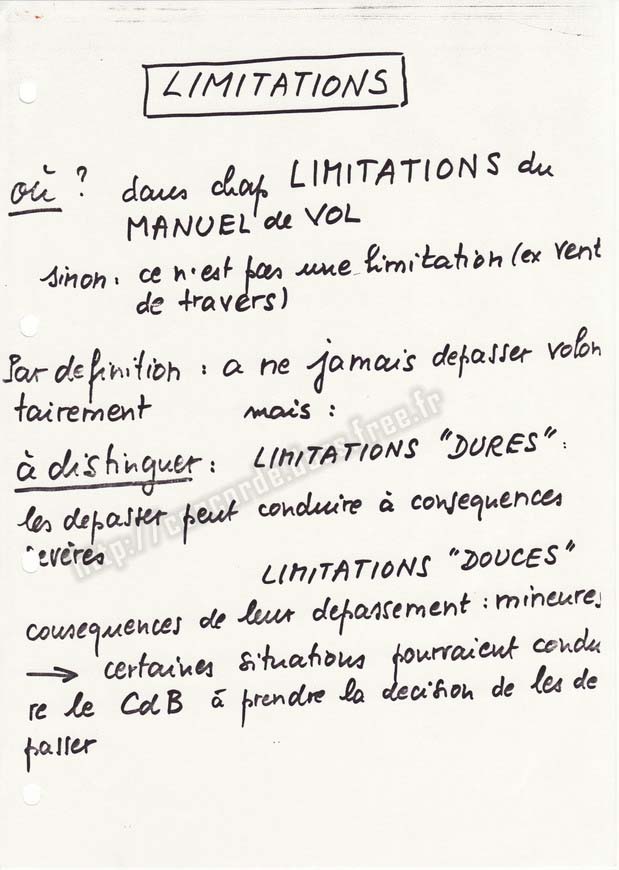 LIMITATIONS
où ? dans chap LIMITATIONS du
MANUEL de VOL
sinon : ce n'est pas une limitation (ex vent
de travers)
Par definition : a ne jamais depasser volon
tairement mais :
à distinguer : LIMITATIONS "DURES" :
les depasser peut conduire à consequences
evères
LIMITATIONS "DOUCES"
consequences de leur depassement : mineures
→ certaines situations pourraient condu
re le CdB à prendre la decision de les de
passer
http://concorde.dars.free.fr